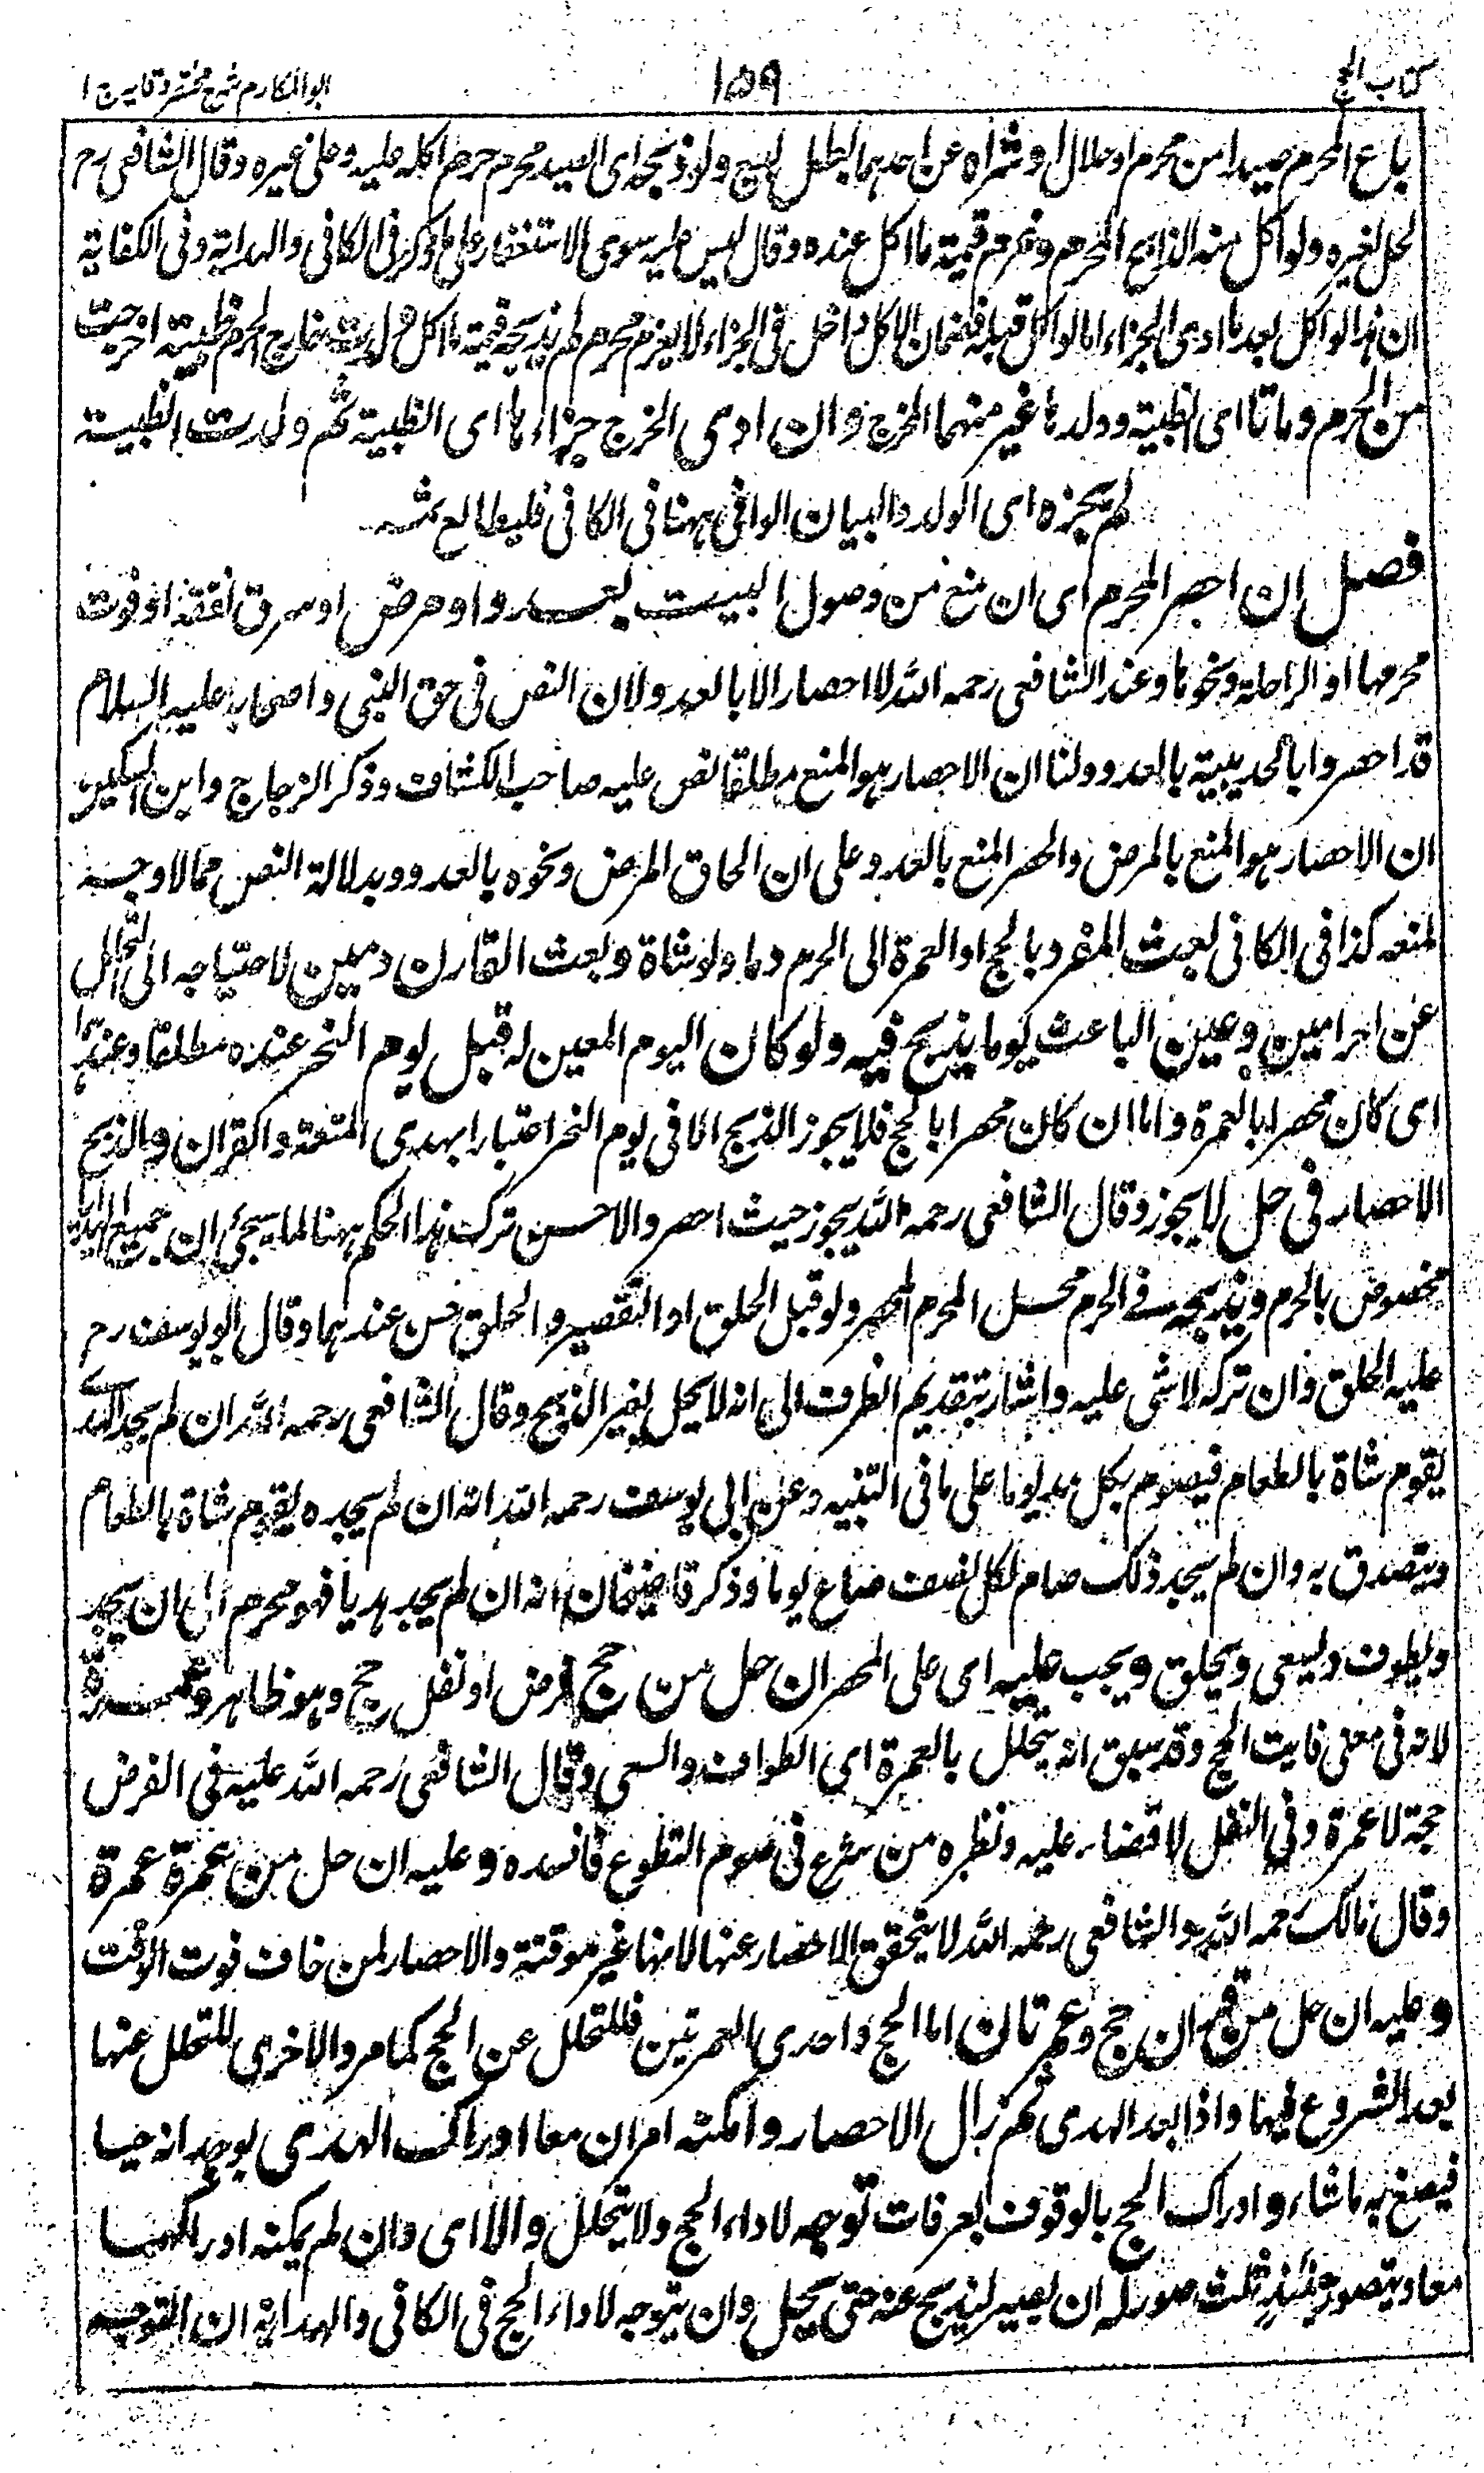 كتاب الحج
١٥٩
ابو المكارم شرح مختصر وقايه ج ١
باع المحرم صيدا من محرم او حلال او شراه عن احدهما بطل البيع ولو ذبحه اى الصيد محرم حرم اكله عليه وعلى غيره وقال الشافعى رح
يحل لغيره ولو اكل منه الذابح المحرم غرم قيمة ما اكل عنده وقالا ليس عليه سوى الاستغفار على ما ذكر فى الكافى والهداية وفى الكفاية
ان هذا لو اكل بعد ما ادى الجزاء اما لو اكل قبله فضمان الاكل داخل فى الجزاء لا يغرم محرم لم يذبحه قيمة ما اكل ولدت خارج الحرم ظبية اخرجت
من الحرم وماتا اى الظبية وولدها غرمهما المخرج وان ادى المخرج جزاءها اى الظبية ثم ولدت الظبية
لم يجزه اى الولد والبيان الوافى ههنا فى الكافى فليطالع ثمه
فصل ان احصر المحرم اى ان منع من وصول البيت بعدو او مرض او سرق نفقة او فوت
محرمها او الراحلة ونحوها وعند الشافعى رحمه الله لا احصار الا بالعدو لان النص فى حق النبى واصحابه عليه السلام
قد احصروا بالحديبية بالعدو ولنا ان الاحصار هو المنع مطلقا نص عليه صاحب الكشاف وذكر الزجاج وابن السكيت
ان الاحصار هو المنع بالمرض والحصر المنع بالعدو على ان الحاق المرض ونحوه بالعدو بدلالة النص مما لا وجه
لمنعه كذا فى الكافى بعث المفرد بالحج او العمرة الى الحرم دما ولو شاة وبعث القارن دمين لاحتياجه الى التحلل
عن احرامين وعين الباعث يوما يذبح فيه ولو كان اليوم المعين له قبل يوم النحر عنده مطلقا وعندهما
اى كان محصرا بالعمرة واما ان كان محصرا بالحج فلا يجوز الذبح الا فى يوم النحر اعتبارا بهدى المتعة والقران والذبح
الاحصار فى حل لا يجوز وقال الشافعى رحمه الله يجوز حيث احصر والاحسن ترك هذا الحكم ههنا لما سيجئ ان جميع الهدايا
مخصوص بالحرم وبذبحه فى الحرم يحل المحرم المحصر ولو قبل الحلق او التقصير والحلق حسن عندهما وقال ابو يوسف رح
عليه الحلق وان تركه لا شى عليه واشار بتقديم الظرف الى انه لا يحل بغير الذبح وقال الشافعى رحمه الله ان لم يجد الهدى
يقوم شاة بالطعام فيصوم بكل مد يوما على ما فى التنبيه وعن ابى يوسف رحمه الله انه ان لم يجده يقوم شاة بالطعام
ويتصدق به وان لم يجد ذلك صام لكل نصف صاع يوما وذكر قاضيخان انه ان لم يجد هديا فهو محرم الى ان يجد
ويطوف ويسعى ويحلق ويجب عليه اى على المحصر ان حل من حج فرض او نفل حج وهو ظاهر وعمرة
لانه فى معنى فايت الحج وقد سبق انه يتحلل بالعمرة اى الطواف والسعى وقال الشافعى رحمه الله عليه فى الفرض
حجة لا عمرة وفى النفل لا قضاء عليه ونظيره من شرع فى صوم التطوع فافسده وعليه ان حل من عمرة عمرة
وقال مالك رحمه الله والشافعى رحمه الله لا يتحقق الاحصار عنها لانها غير موقتة والاحصار لمن خاف فوت الوقت
وعليه ان حل من قران حج وعمرتان اما الحج واحدى العمرتين فللتحلل عن الحج كما مر والاخرى للتحلل عنها
بعد الشروع فيها واذا بعد الهدى ثم زال الاحصار وامكنه امران معا ادراك الهدى بوجدانه حيا
فيصنع به ما شاء وادراك الحج بالوقوف بعرفات توجه لاداء الحج ولا يتحلل والا اى وان لم يمكنه ادراكهما
معا ويتصور حينئذ ثلث صور له ان يصبر ليذبح عنه حتى يحل وان يتوجه لاداء الحج فى الكافى والهداية ان التوجه